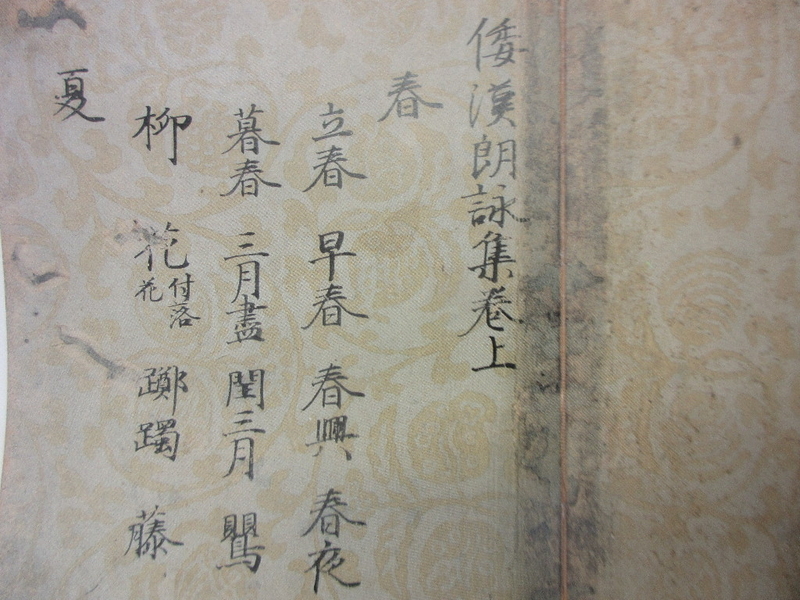 倭漢朗詠集卷上
春
立春 早春 春興 春夜
暮春 三月盡 閏三月 鸎
柳 花付落花 躑躅 藤
夏